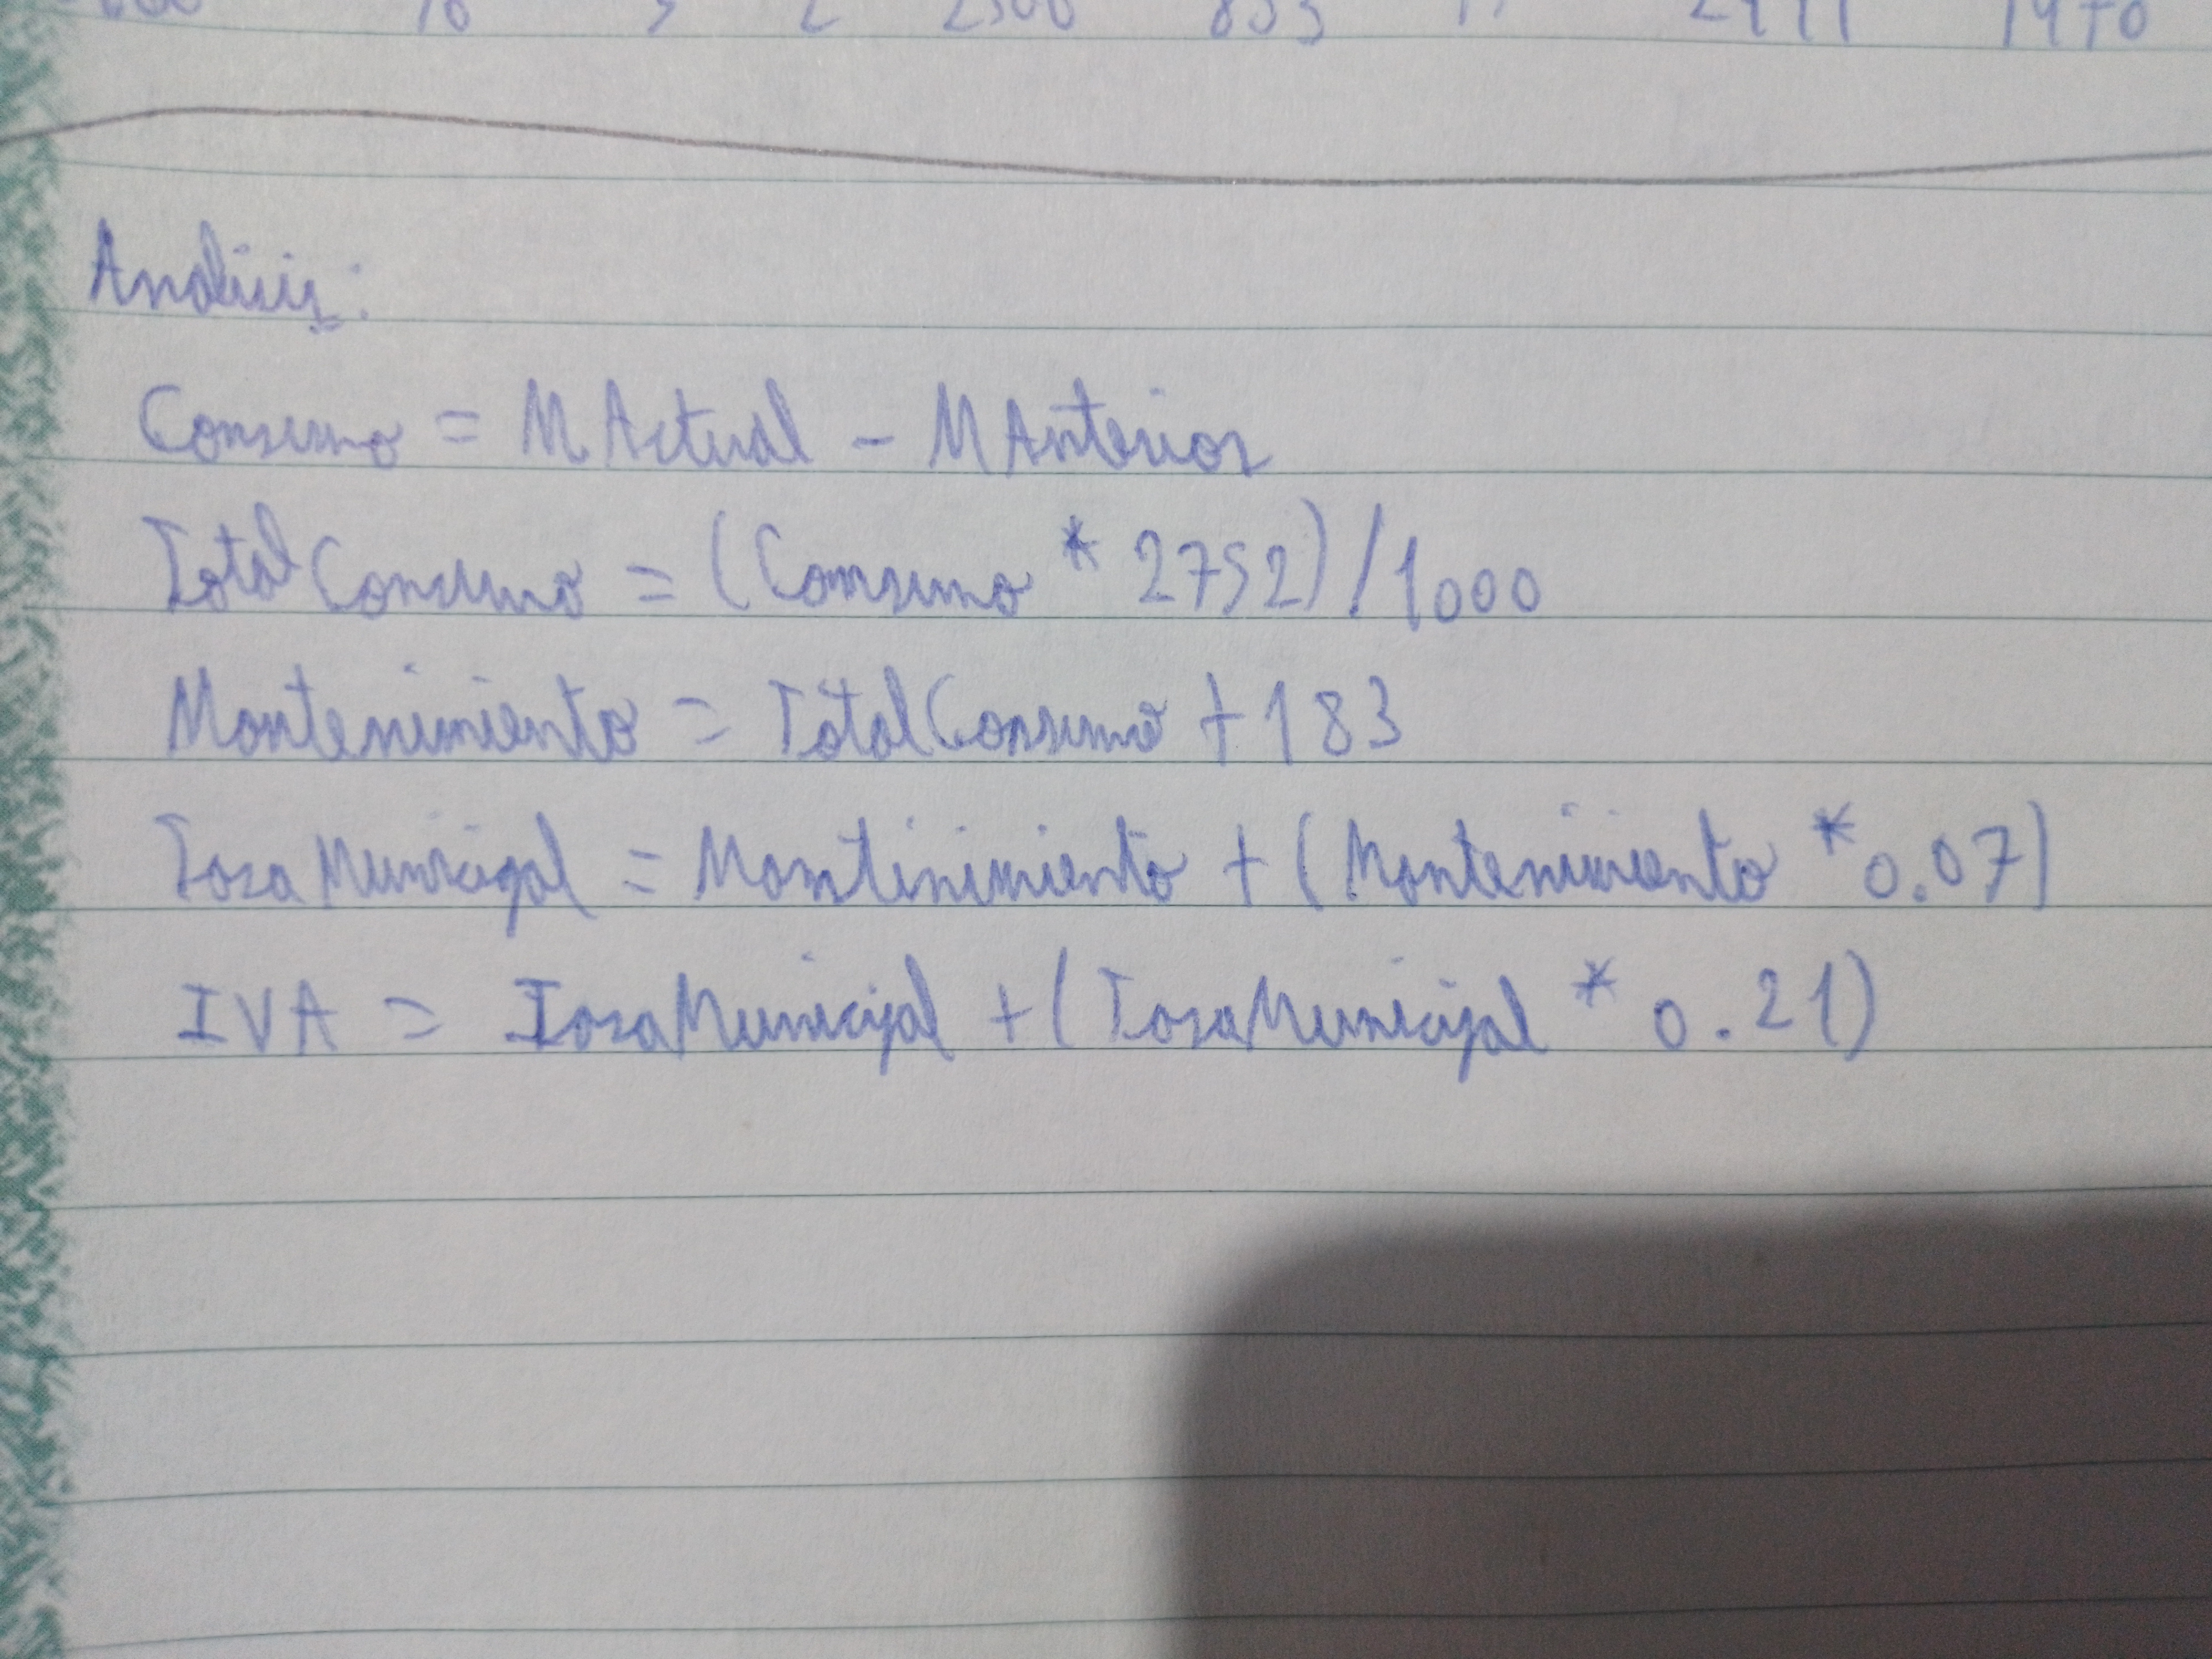 10 5 2 2300 853 1470
Analisis:
Consumo = MActual - MAnterior
TotalConsumo = (Consumo * 2752) / 1000
Mantenimiento = TotalConsumo + 183
TasaMunicipal = Mantinimiento + (Mantenimiento * 0.07)
IVA = TasaMunicipal + (TasaMunicipal * 0.21)